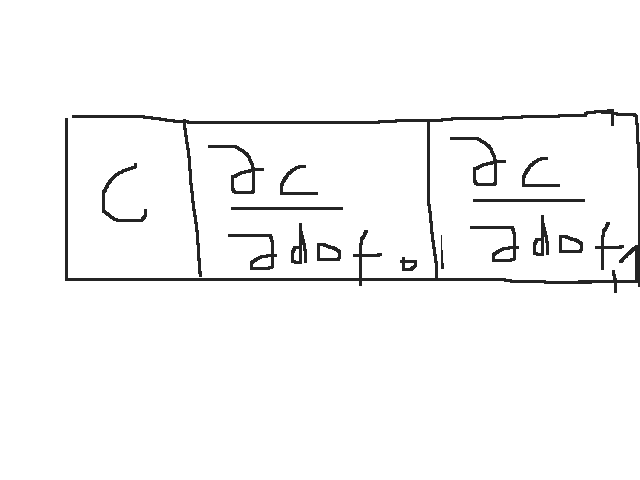 C
∂C
∂dof₀
∂C
∂dof₁